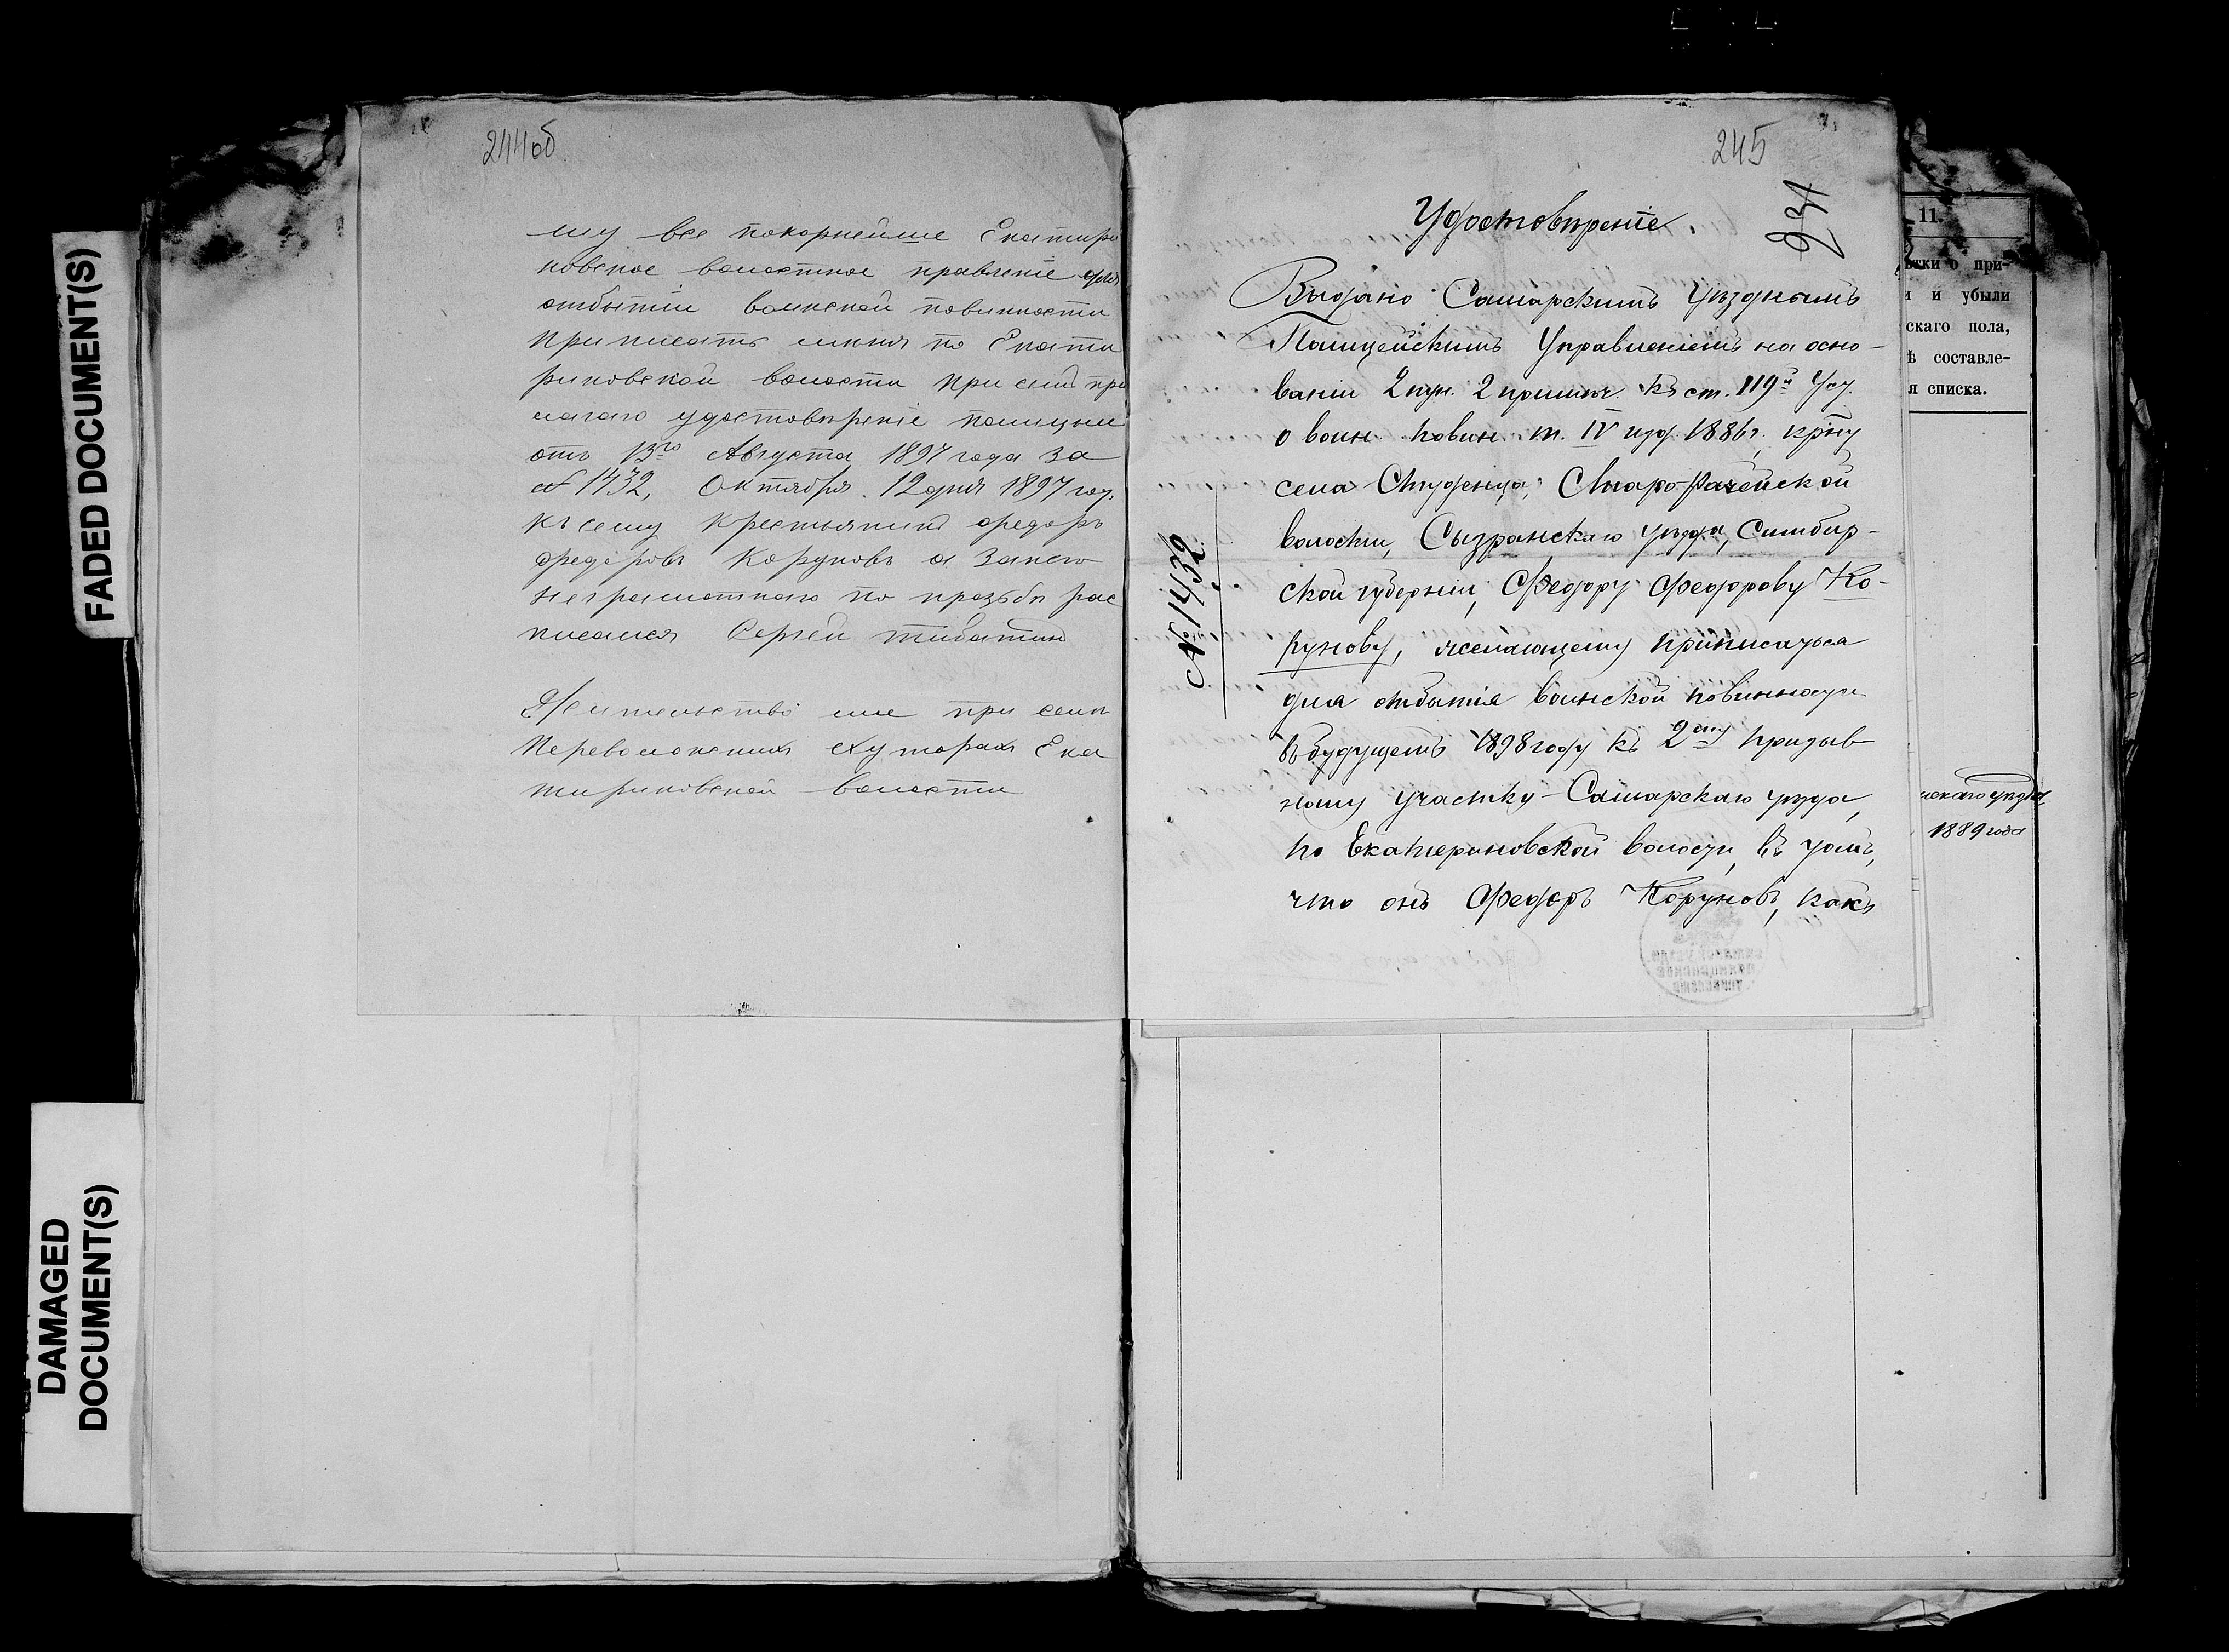 FADED DOCUMENT(S)
DAMAGED
DOCUMENT(S)
244об
му все покорнейше Екатири
новское волостное правление для
отбытии воинской повинности
приписать меня по Екати
риновской волости при сим при
лагаю удостовѣреніе полицыи
отъ 13го Августа 1897 года за
№ 1432, Октября 12 дня 1897 год.
Къ сему крестьянинъ Федоръ
Федоровъ Корунов а за него
неграмотного по прозьбѣ рас
писался Сергей
Жительство мое при селѣ
Переволокских хуторах Ека
тириновской волости
245
234
Удостовѣреніе.
Выдано Самарскимъ Уѣзднымъ
Полицейскимъ Управленіемъ на осно-
ваніи 2 пун. 2 примѣч. къ ст. 119й Уст.
о воин. повин. т. IV изд. 1886 г. кр-ну
села Студенца, Старо-Рачейской
волости, Сызранскаго уѣзда, Симбир-
ской губерніи, Федору Федорову Ко-
рунову, желающему приписаться
для отбытія воинской повинности
въ будущемъ 1898 году къ 2му призыв
ному участку Самарскаго уѣзда,
по Екатериновской волости, въ томъ,
что онъ Федоръ Коруновъ, какъ
№ 1432
11.
ѣтки о при-
и и убыли
скаго пола,
ѣ составле-
я списка.
скаго уѣзда
1889 года